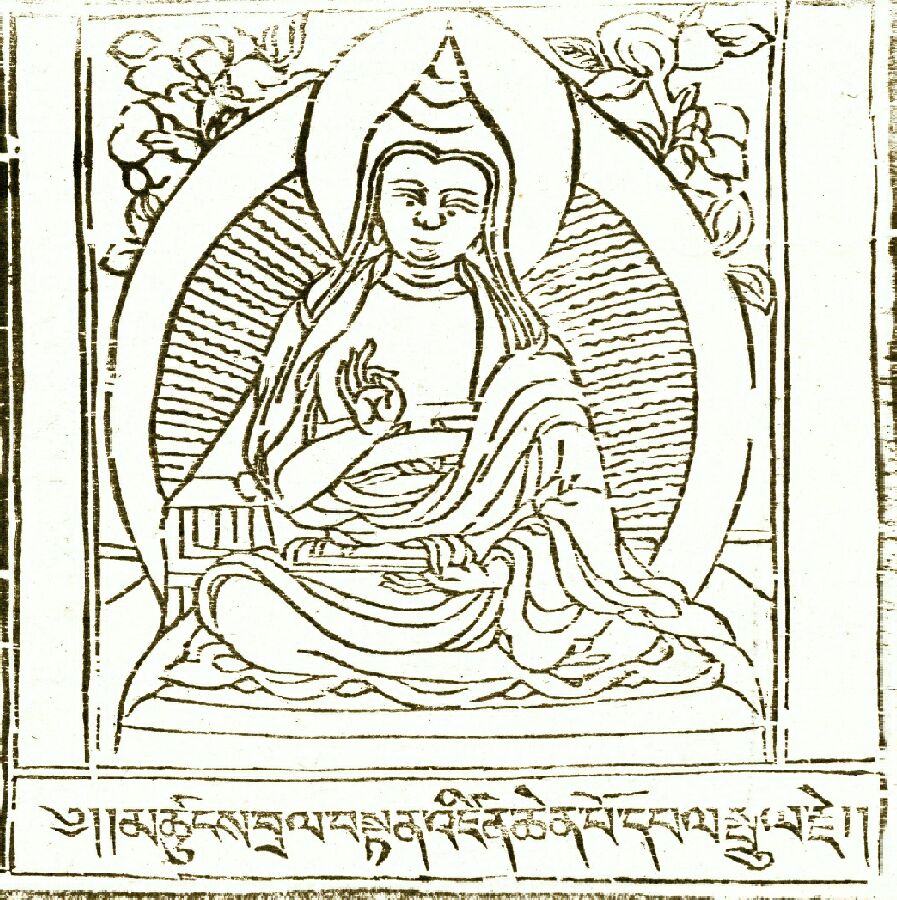 ༄།།མཚུངས་བྲལ་བསྟན་འཛིན་ཆེན་པོ་དཔལ་སྤྲུལ་རྗེ།།